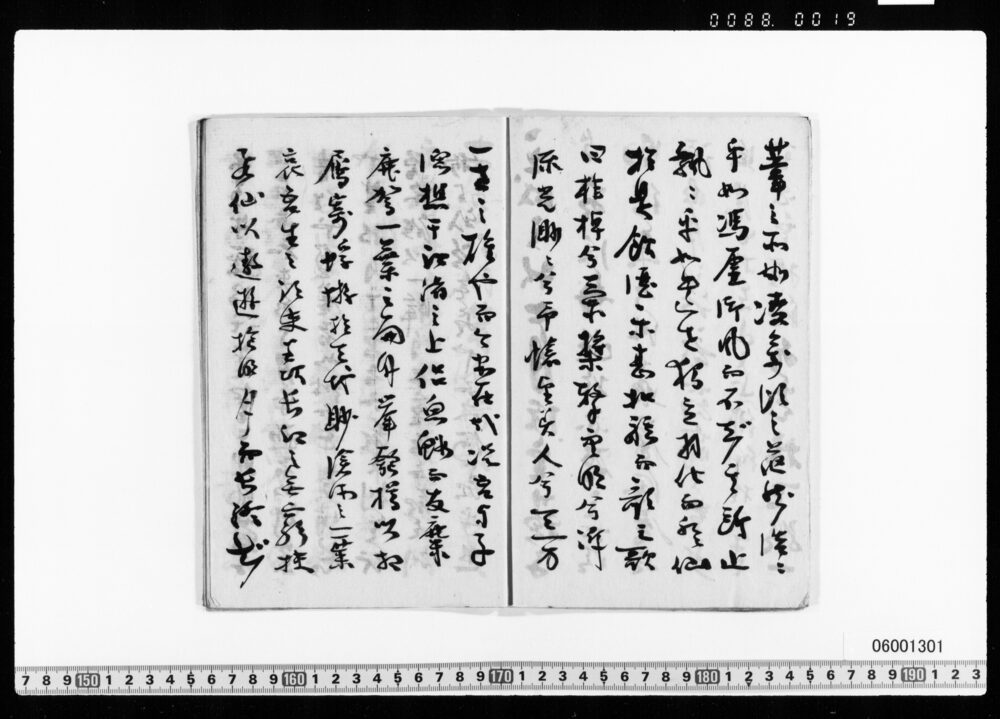 0088. 0019
葦之所如凌萬頃之茫然浩々
乎如馮虛御風而不知其所止
飄々乎如遺世獨立羽化而登仙
於是飲酒樂甚扣舷而歌之歌
曰桂棹兮蘭槳擊空明兮泝
流光渺々兮予懷望美人兮天一方
一世之雄也而今安在哉况吾与子
漁樵于江渚之上侶魚鰕而友麋
鹿駕一葉之扁舟举匏樽以相
属寄蜉蝣於天地渺滄海之一粟
哀吾生之須臾羨長江之無窮挾
飛仙以遨遊抱明月而長終知
06001301
7 8 9 150 1 2 3 4 5 6 7 8 9 160 1 2 3 4 5 6 7 8 9 170 1 2 3 4 5 6 7 8 9 180 1 2 3 4 5 6 7 8 9 190 1 2 3